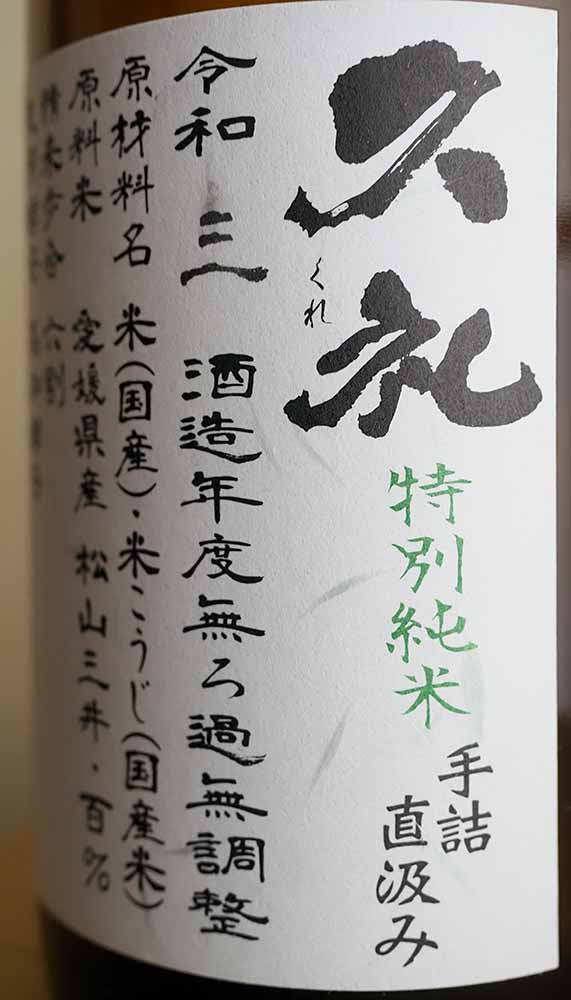 久礼
くれ
特別純米
手詰
直汲み
令和三酒造年度無ろ過無調整
原材料名 米(国産)・米こうじ(国産米)
原料米 愛媛県産 松山三井・百%
精米歩合 六割